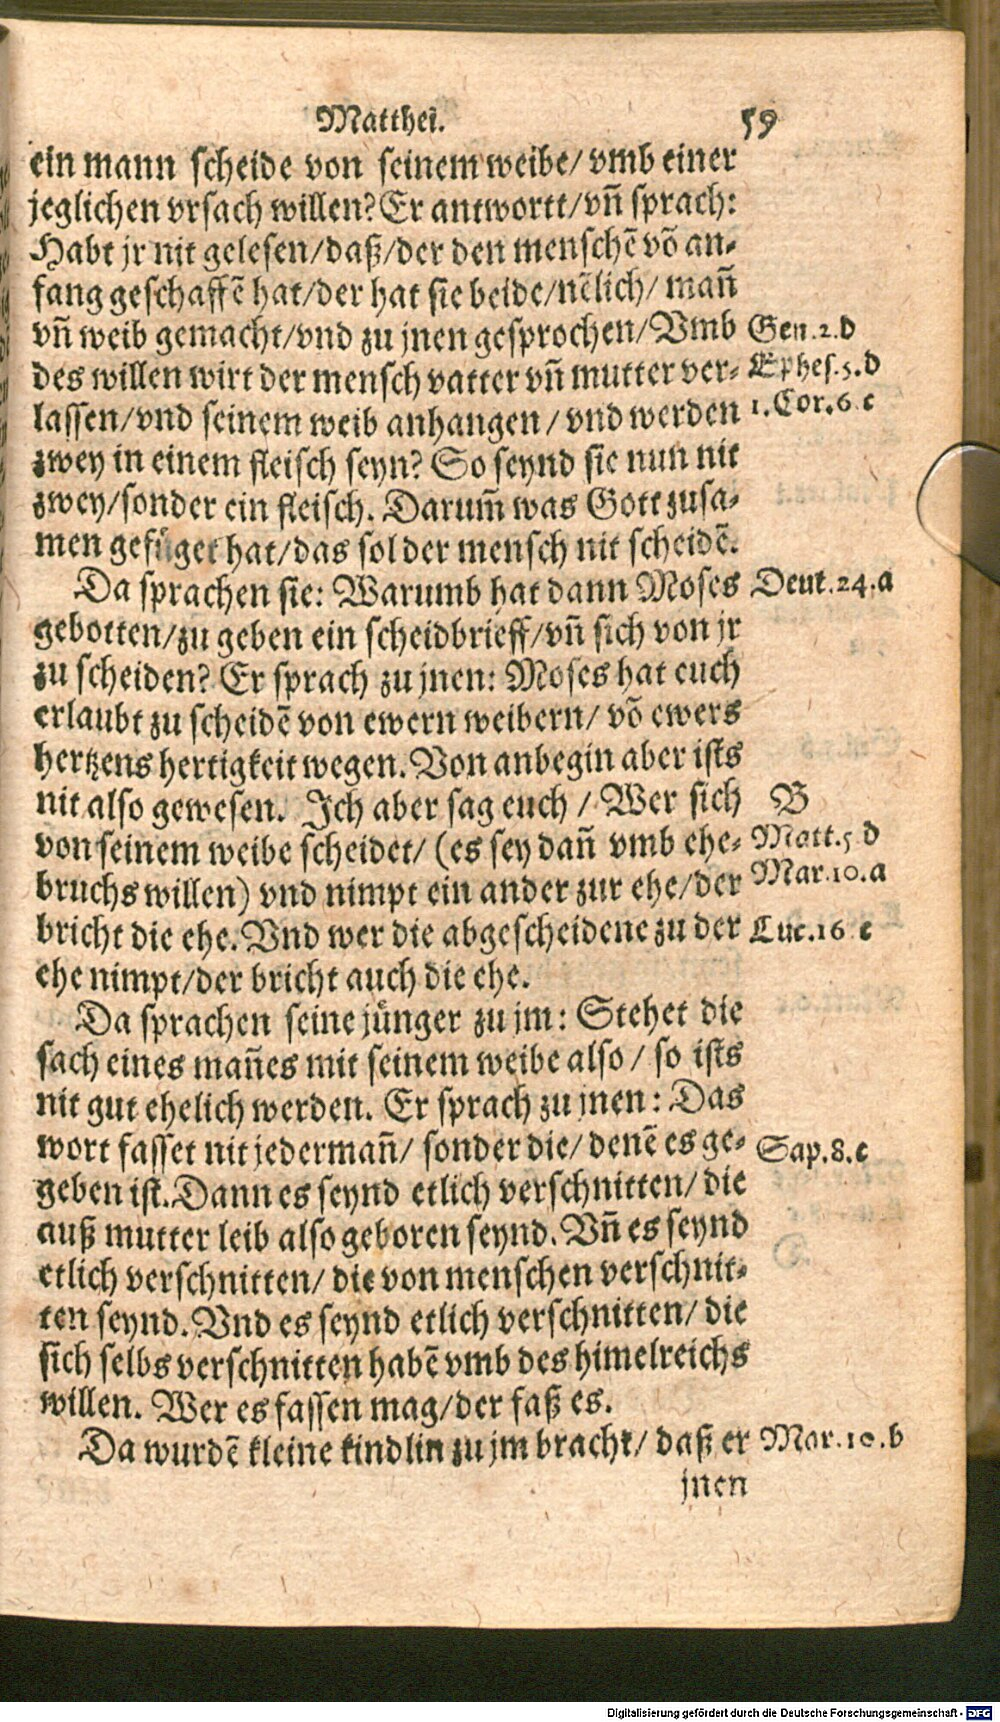 Matthei. 59
ein mann scheide von seinem weibe/ vmb einer
jeglichen vrsach willen? Er antwortt/ vñ sprach:
Habt jr nit gelesen/ daß/ der den menschē vō an-
fang geschaffē hat/ der hat sie beide/ nēlich/ mañ
vñ weib gemacht/ vnd zu jnen gesprochen/ Vmb Gen.2.d
des willen wirt der mensch vatter vñ mutter ver- Ephes.5.d
lassen/ vnd seinem weib anhangen/ vnd werden 1.Cor.6.c
zwey in einem fleisch seyn? So seynd sie nun nit
zwey/ sonder ein fleisch. Darum̄ was Gott zusa-
men gefüget hat/ das sol der mensch nit scheidē.
Da sprachen sie: Warumb hat dann Moses Deut.24.a
gebotten/ zu geben ein scheidbrieff/ vñ sich von jr
zu scheiden? Er sprach zu jnen: Moses hat euch
erlaubt zu scheidē von ewern weibern/ vō ewers
hertzens hertigkeit wegen. Von anbegin aber ists
nit also gewesen. Ich aber sag euch/ Wer sich B
von seinem weibe scheidet/ (es sey dañ vmb ehe- Matt.5 d
bruchs willen) vnd nimpt ein ander zur ehe/ der Mar.10.a
bricht die ehe. Vnd wer die abgescheidene zu der Luc.16 c
ehe nimpt/ der bricht auch die ehe.
Da sprachen seine jünger zu jm: Stehet die
sach eines mañes mit seinem weibe also/ so ists
nit gut ehelich werden. Er sprach zu jnen: Das
wort fasset nit jedermañ/ sonder die/ denē es ge- Sap.8.c
geben ist. Dann es seynd etlich verschnitten/ die
auß mutter leib also geboren seynd. Vñ es seynd
etlich verschnitten/ die von menschen verschnit-
ten seynd. Vnd es seynd etlich verschnitten/ die
sich selbs verschnitten habē vmb des himelreichs
willen. Wer es fassen mag/ der faß es.
Da wurdē kleine kindlin zu jm bracht/ daß er Mar.10.b
jnen
Digitalisierung gefördert durch die Deutsche Forschungsgemeinschaft - DFG